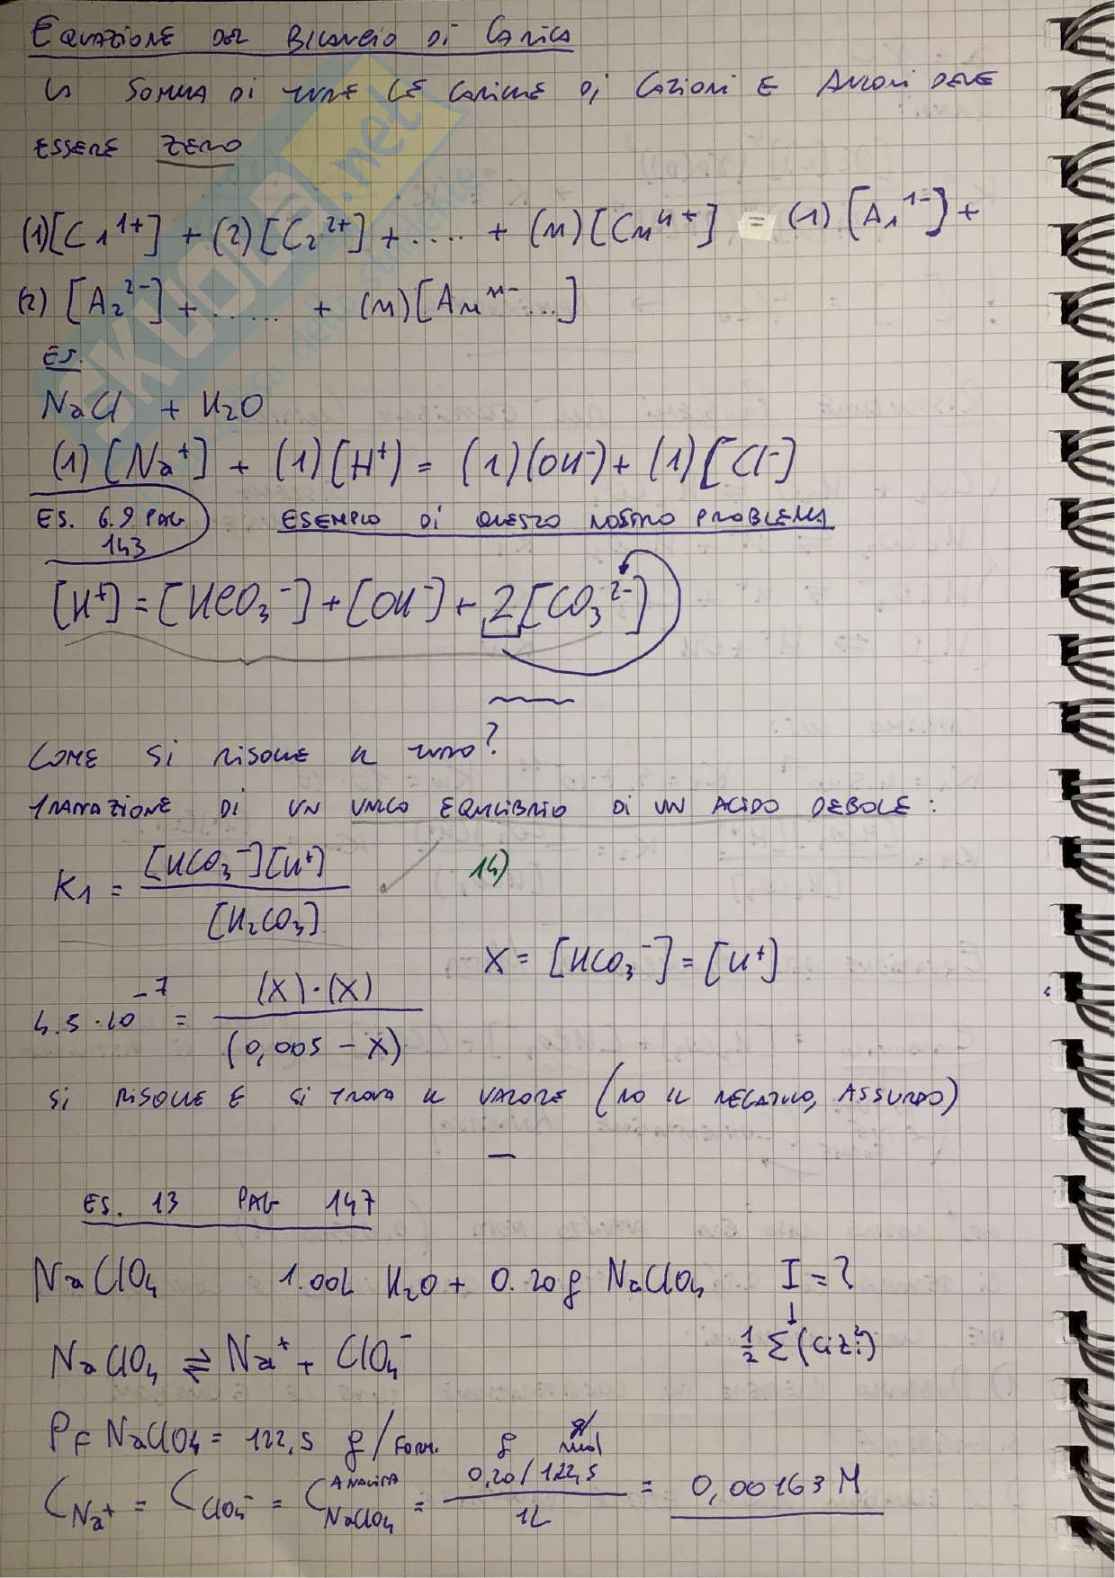 EQUAZIONE DEL BILANCIO DI CARICA
↳ SOMMA DI TUTTE LE CARICHE DI CATIONI E ANIONI DEVE
ESSERE ZERO
(1)[C₁¹⁺] + (2)[C₂²⁺] + .... + (n)[Cnⁿ⁺] = (1)[A₁¹⁻] +
(2)[A₂²⁻] + ..... + (n)[Anⁿ⁻...]
ES.
NaCl + H₂O
(1)[Na⁺] + (1)[H⁺) = (1)(OH⁻) + (1)[Cl⁻]
ES. 6.9 PAG 143
ESEMPIO DI QUESTO NOSTRO PROBLEMA
[H⁺] = [HCO₃⁻] + [OH⁻) + 2[CO₃²⁻)
COME SI RISOLVE IL TUTTO?
TRATTAZIONE DI UN UNICO EQUILIBRIO DI UN ACIDO DEBOLE:
K₁ = [HCO₃⁻][H⁺) / [H₂CO₃] 14)
X = [HCO₃⁻] = [H⁺]
4.5·10⁻⁷ = (X)·(X) / (0,005 - X)
SI RISOLVE E SI TROVA IL VALORE (NO IL NEGATIVO, ASSURDO)
ES. 13 PAG 147
NaClO₄ 1.00L H₂O + 0.20g NaClO₄ I = ?
↓
NaClO₄ ⇌ Na⁺ + ClO₄⁻ ½ Σ(ciz²i)
PF NaClO₄ = 122,5 g/FORM.
C Na⁺ = C ClO₄⁻ = C ANALITICA NaClO₄ = 0,20 g / 122,5 g/mol / 1L = 0,00163 M
SKUOLA.net